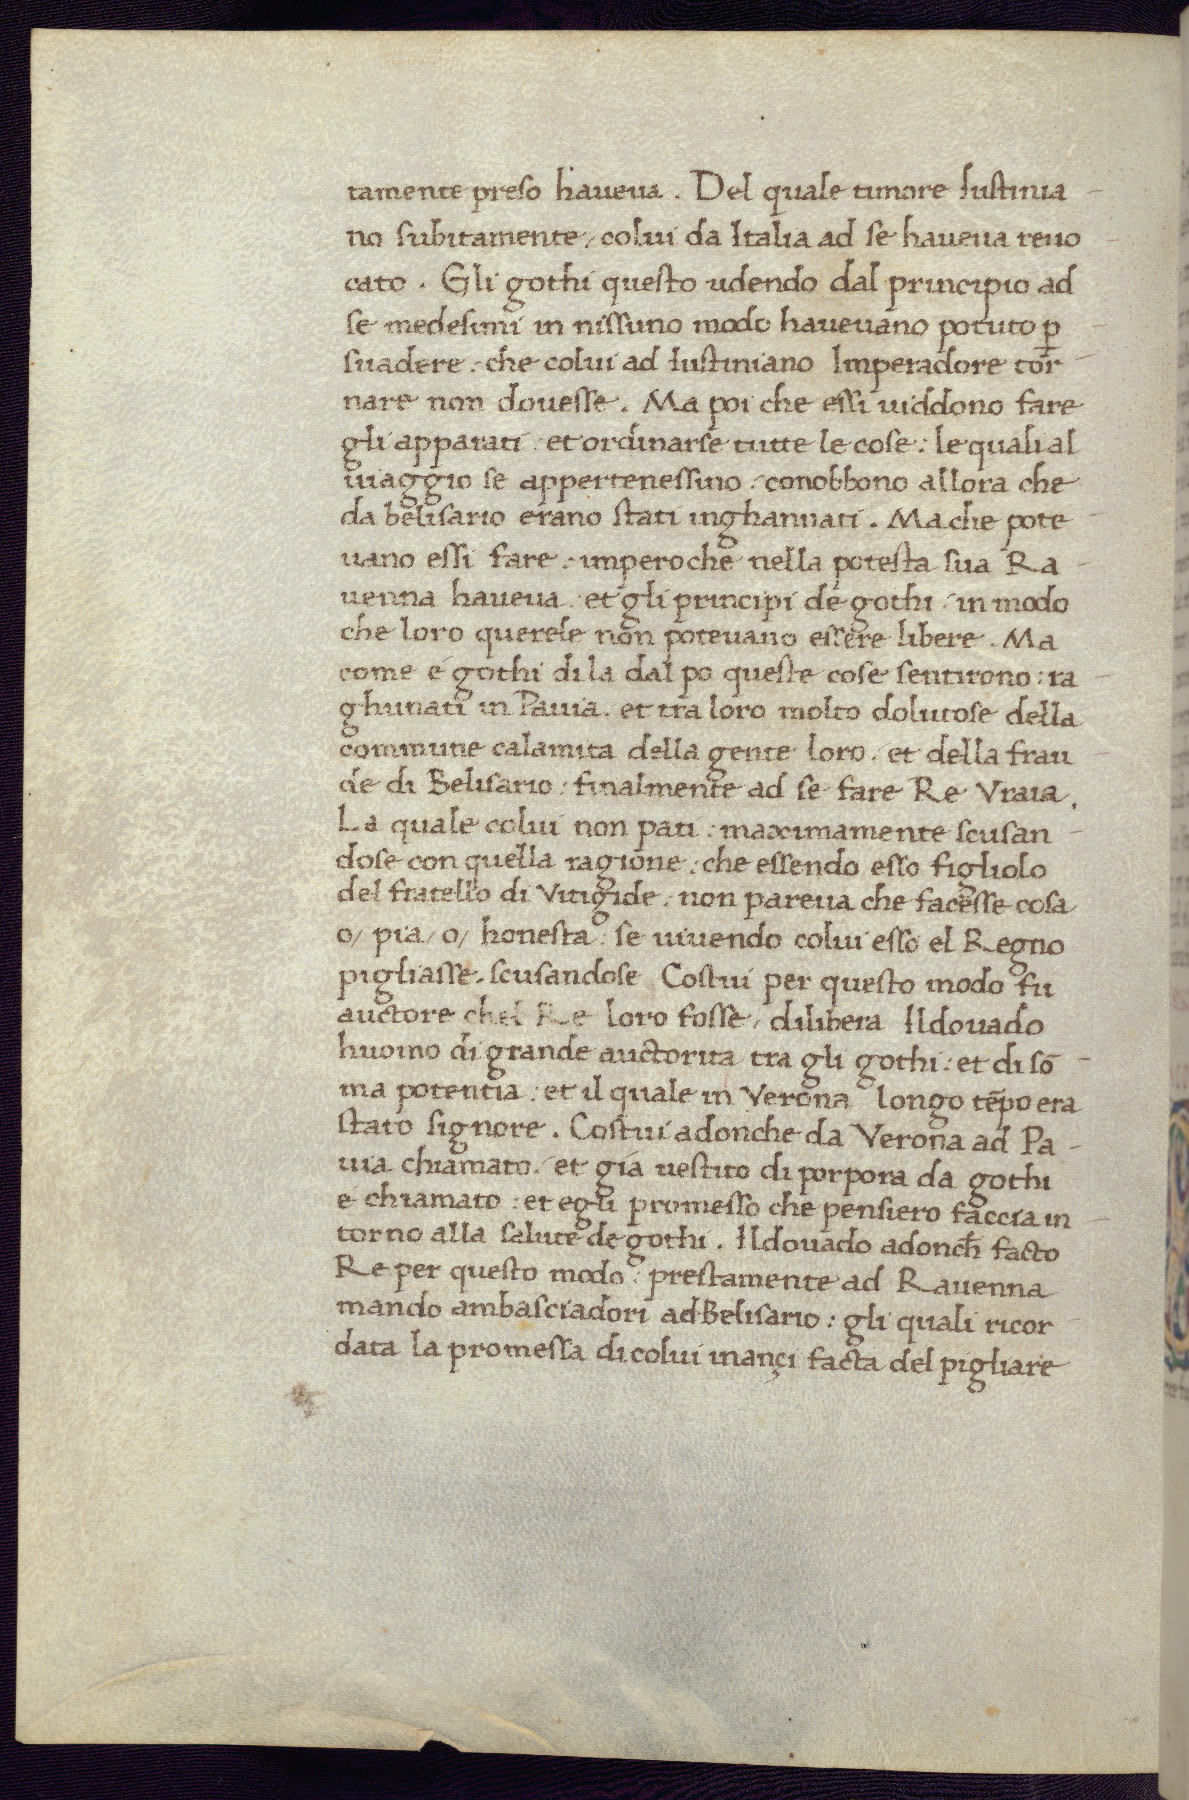 tamente preso haueua . Del quale timore Iustinia -
no subitamente / colui da Italia ad se haueua reuo
cato . Gli gothi questo udendo dal principio ad
se medesimi in nissuno modo haueuano potuto ꝑ -
suadere : che colui ad Iustiniano Imperadore tor -
nare non douesse . Ma poi che essi uiddono fare
gli apparati : et ordinarse tutte le cose : le quali al
uiaggio se appertenessino : conobbono allora che
da belisario erano stati inghannati . Ma che pote -
uano essi fare : imperoche nella potesta sua Ra -
uenna haueua : et gli principi de gothi : in modo
che loro querele non poteuano essere libere . Ma
come e gothi di la dal po queste cose sentirono : ra -
ghunati in Pauia . et tra loro molto dolutose della
commune calamita della gente loro . et della frau -
de di Belisario : finalmente ad se fare Re Vraia .
La quale colui non pati : maximamente scusan -
dose con quella ragione : che essendo esso figliolo
del fratello di Vitigide : non pareua che facesse cosa
o / pia / o / honesta : se uiuendo colui esso el Regno
pigliasse . scusandose Costui per questo modo fu
auctore chel Re loro fosse / dilibera Ildouado
huomo di grande auctorita tra gli gothi : et di sō -
ma potentia : et il quale in Verona longo tēpo era
stato signore . Costui adonche da Verona ad Pa -
uia chiamato . et gia uestito di porpora da gothi
e chiamato : et egli promesso che pensiero faccia in -
torno alla salute de gothi . Ildouado adonch̄ facto
Re per questo modo : prestamente ad Rauenna
mando ambasciadori ad Belisario : gli quali ricor -
data la promessa di colui inançi facta del pigliare